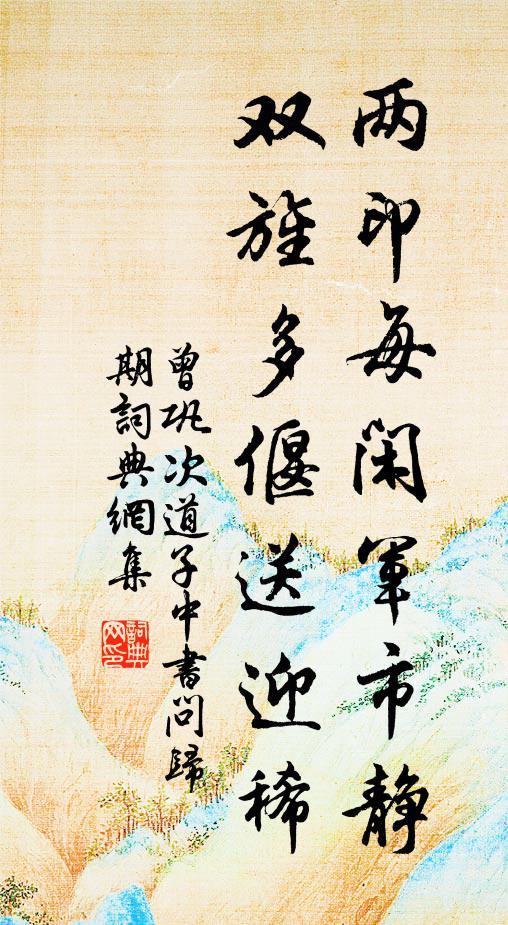 两印每闲军市静
双旌多偃送迎稀
曾巩次道子中書问歸
期詞典網集
詞典
网印